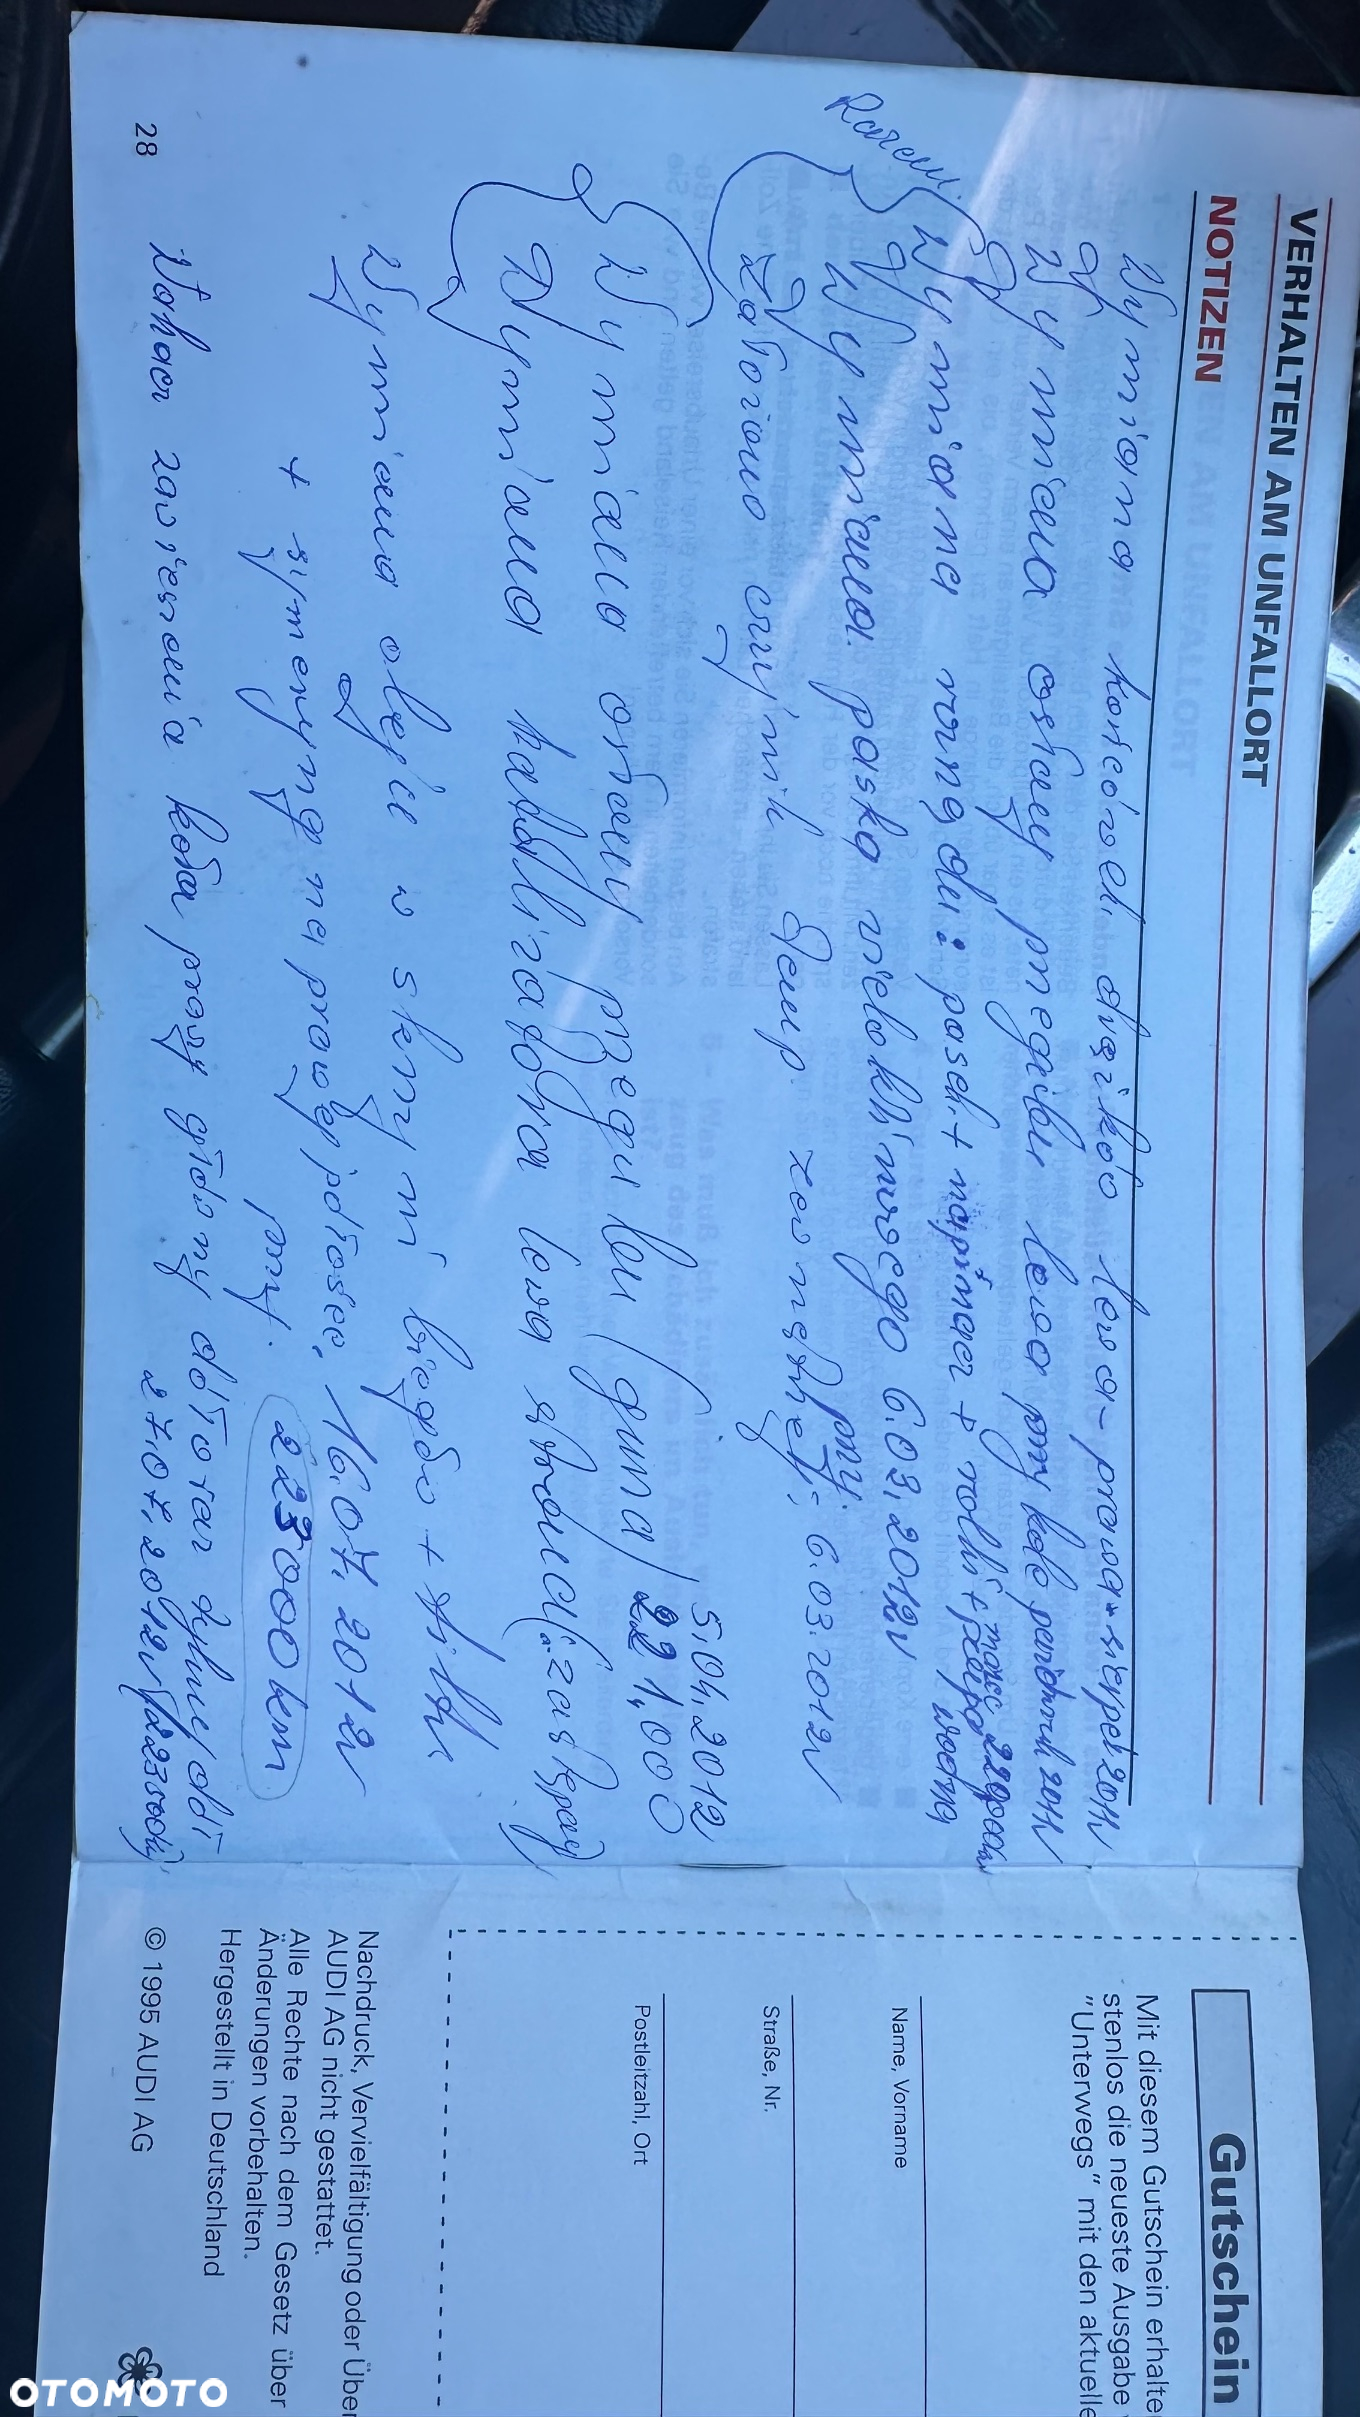 VERHALTEN AM UNFALLORT
NOTIZEN
Wymiana końcówek drążków lewa - prawa - sierpień 2011r
Wymiana osłony przegubu lewa przy kole październik 2011r
Razem
Wymiana rozrządu: pasek + napinacz + rolki + pompa wodna
marzec 220000km
Wymiana paska wieloklinowego 6.03.2012r
Założono czujnik temp. zewnętrznej: 6.03.2012r
przy.
5.04.2012
Wymiana osłony przegubu (guma) 221.000
Wymiana kabłi zapłona lewa strona (
Wymiana oleju w skrzyni biegów + filtr
+ symeryng na prawej półosce, 16.07.2012r
przy. 223000km
Wahacz zawieszenia koła prawy główny dół oraz tylne/dół
27.07.2012r/223500km
28
Gutschein
Mit diesem Gutschein erhalte
stenlos die neueste Ausgabe
"Unterwegs" mit den aktuelle
Name, Vorname
Straße, Nr.
Postleitzahl, Ort
Nachdruck, Vervielfältigung oder Über
AUDI AG nicht gestattet.
Alle Rechte nach dem Gesetz über
Änderungen vorbehalten.
Hergestellt in Deutschland
© 1995 AUDI AG
OTOMOTO